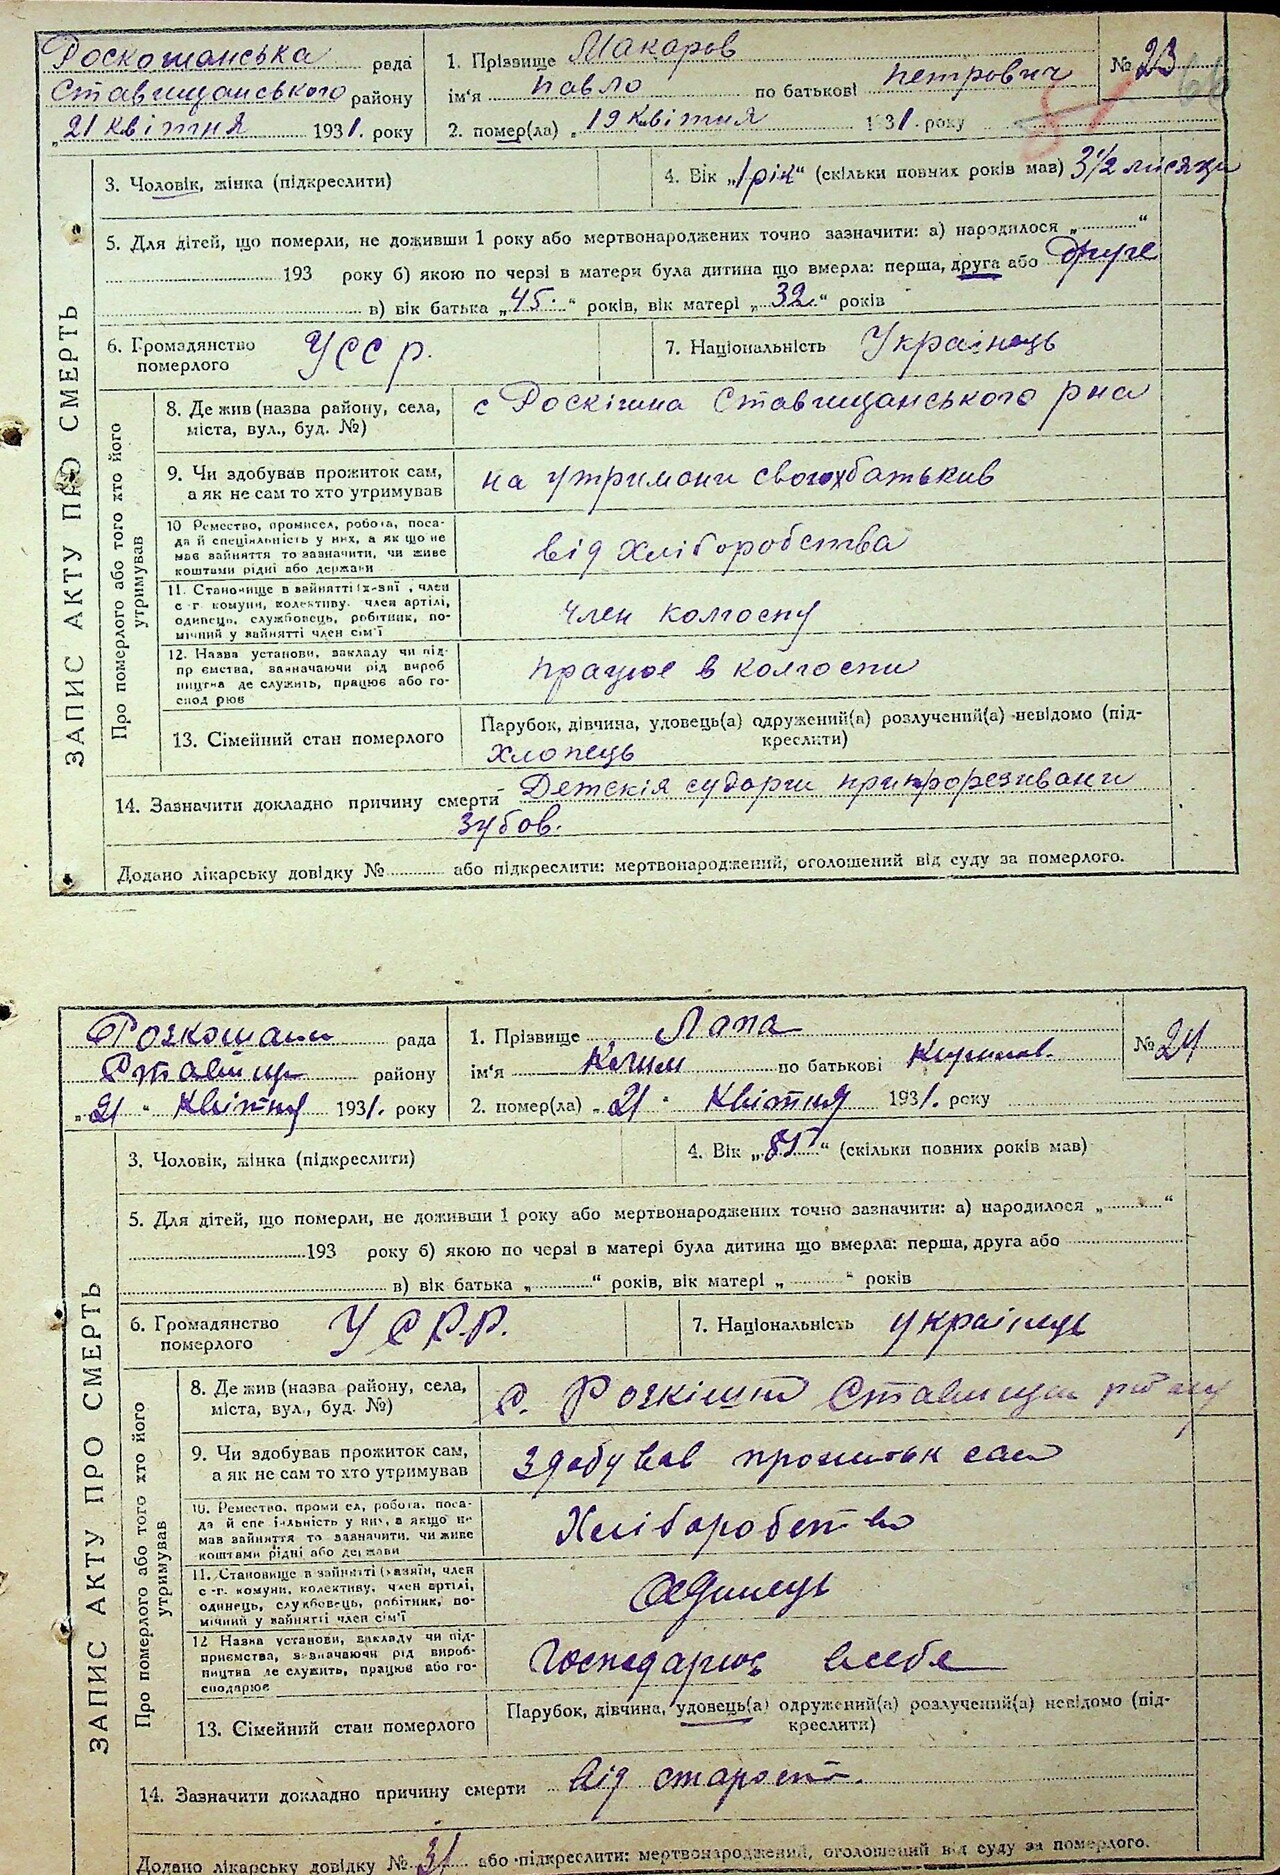 Роскошанська рада
Ставищанського району
„21 Квітня 1931. року
1. Прізвище Макаров
ім'я Павло по батькові Петрович
2. помер(ла) „19 Квітня 1931. року
№ 23
66
ЗАПИС АКТУ ПРО СМЕРТЬ
3. Чоловік, жінка (підкреслити)
4. Вік „1 рік“ (скільки повних років мав) 3½ місяци
5. Для дітей, що померли, не доживши 1 року або мертвонароджених точно зазначити: а) народилося „..........“
193 року б) якою по черзі в матери була дитина що вмерла: перша, друга або друге
в) вік батька „45.“ років, вік матері „32.“ років
6. Громадянство померлого УССР.
7. Національність Українець
Про померлого або того хто його утримував
8. Де жив (назва району, села,
міста, вул., буд. №)
с Роскішна Ставищанського рна
9. Чи здобував прожиток сам,
а як не сам то хто утримував
на утримони своіх батькив
10 Ремество, промисел, робота, поса-
да й спеціяльність у них, а як що не
має зайняття то зазначити, чи живе
коштами рідні або держави
від Хліборобства
11. Становище в зайнятті (х-заї , член
с-г. комуни, колективу. член артілі,
одинець, службовець, робітник, по-
мічний у зайнятті член сім'ї
член колгоспу
12. Назва установи, закладу чи під-
пр ємства, зазначаючи рід вироб
ництва де служить, працює або го-
спод рює
працює в колгоспи
13. Сімейний стан померлого
Парубок, дівчина, удовець(а) одружений(а) розлучений(а) невідомо (під-
креслити)
хлопець
14. Зазначити докладно причину смерти Детскія судорги припрорезивани
зубов.
Додано лікарську довідку №.......... або підкреслити: мертвонароджений, оголошений від суду за померлого.
Розкошани рада
Ставищ району
„21“ Квітня 1931. року
1. Прізвище Лапа
ім'я по батькові
2. помер(ла) „21“ Квітня 1931. року
№ 24
ЗАПИС АКТУ ПРО СМЕРТЬ
3. Чоловік, жінка (підкреслити)
4. Вік „85“ (скільки повних років мав)
5. Для дітей, що померли, не доживши 1 року або мертвонароджених точно зазначити: а) народилося „..........“
193 року б) якою по черзі в матері була дитина що вмерла: перша, друга або
в) вік батька „..........“ років, вік матері „..........“ років
6. Громадянство померлого УСРР.
7. Національність українець
Про померлого або того хто його утримував
8. Де жив (назва району, села,
міста, вул., буд. №)
с. Розкішна Ставищан
9. Чи здобував прожиток сам,
а як не сам то хто утримував
Здобував прожиток сам
10. Ремество, проми ел, робота, поса-
да й спе іяльність у них, а якщо не
мав зайняття то зазначити, чи живе
коштами рідні або держави
Хліборобство
11. Становище в зайнятті (хазяїн, член
с-г. комуни, колективу, член артілі,
одинець, службовець, робітник, по-
мічний у зайнятті член сім'ї
Одинець
12 Назва установи, закладу чи під-
приємства, зазначаючи рід вироб-
ництва де служить, працює або го-
сподарює
Господарює всебе
13. Сімейний стан померлого
Парубок, дівчина, удовець(а) одружений(а) розлучений(а) невідомо (під-
креслити)
14. Зазначити докладно причину смерти від старости.
Додано лікарську довідку № 31 або підкреслити: мертвонароджений, оголошений від суду за померлого.